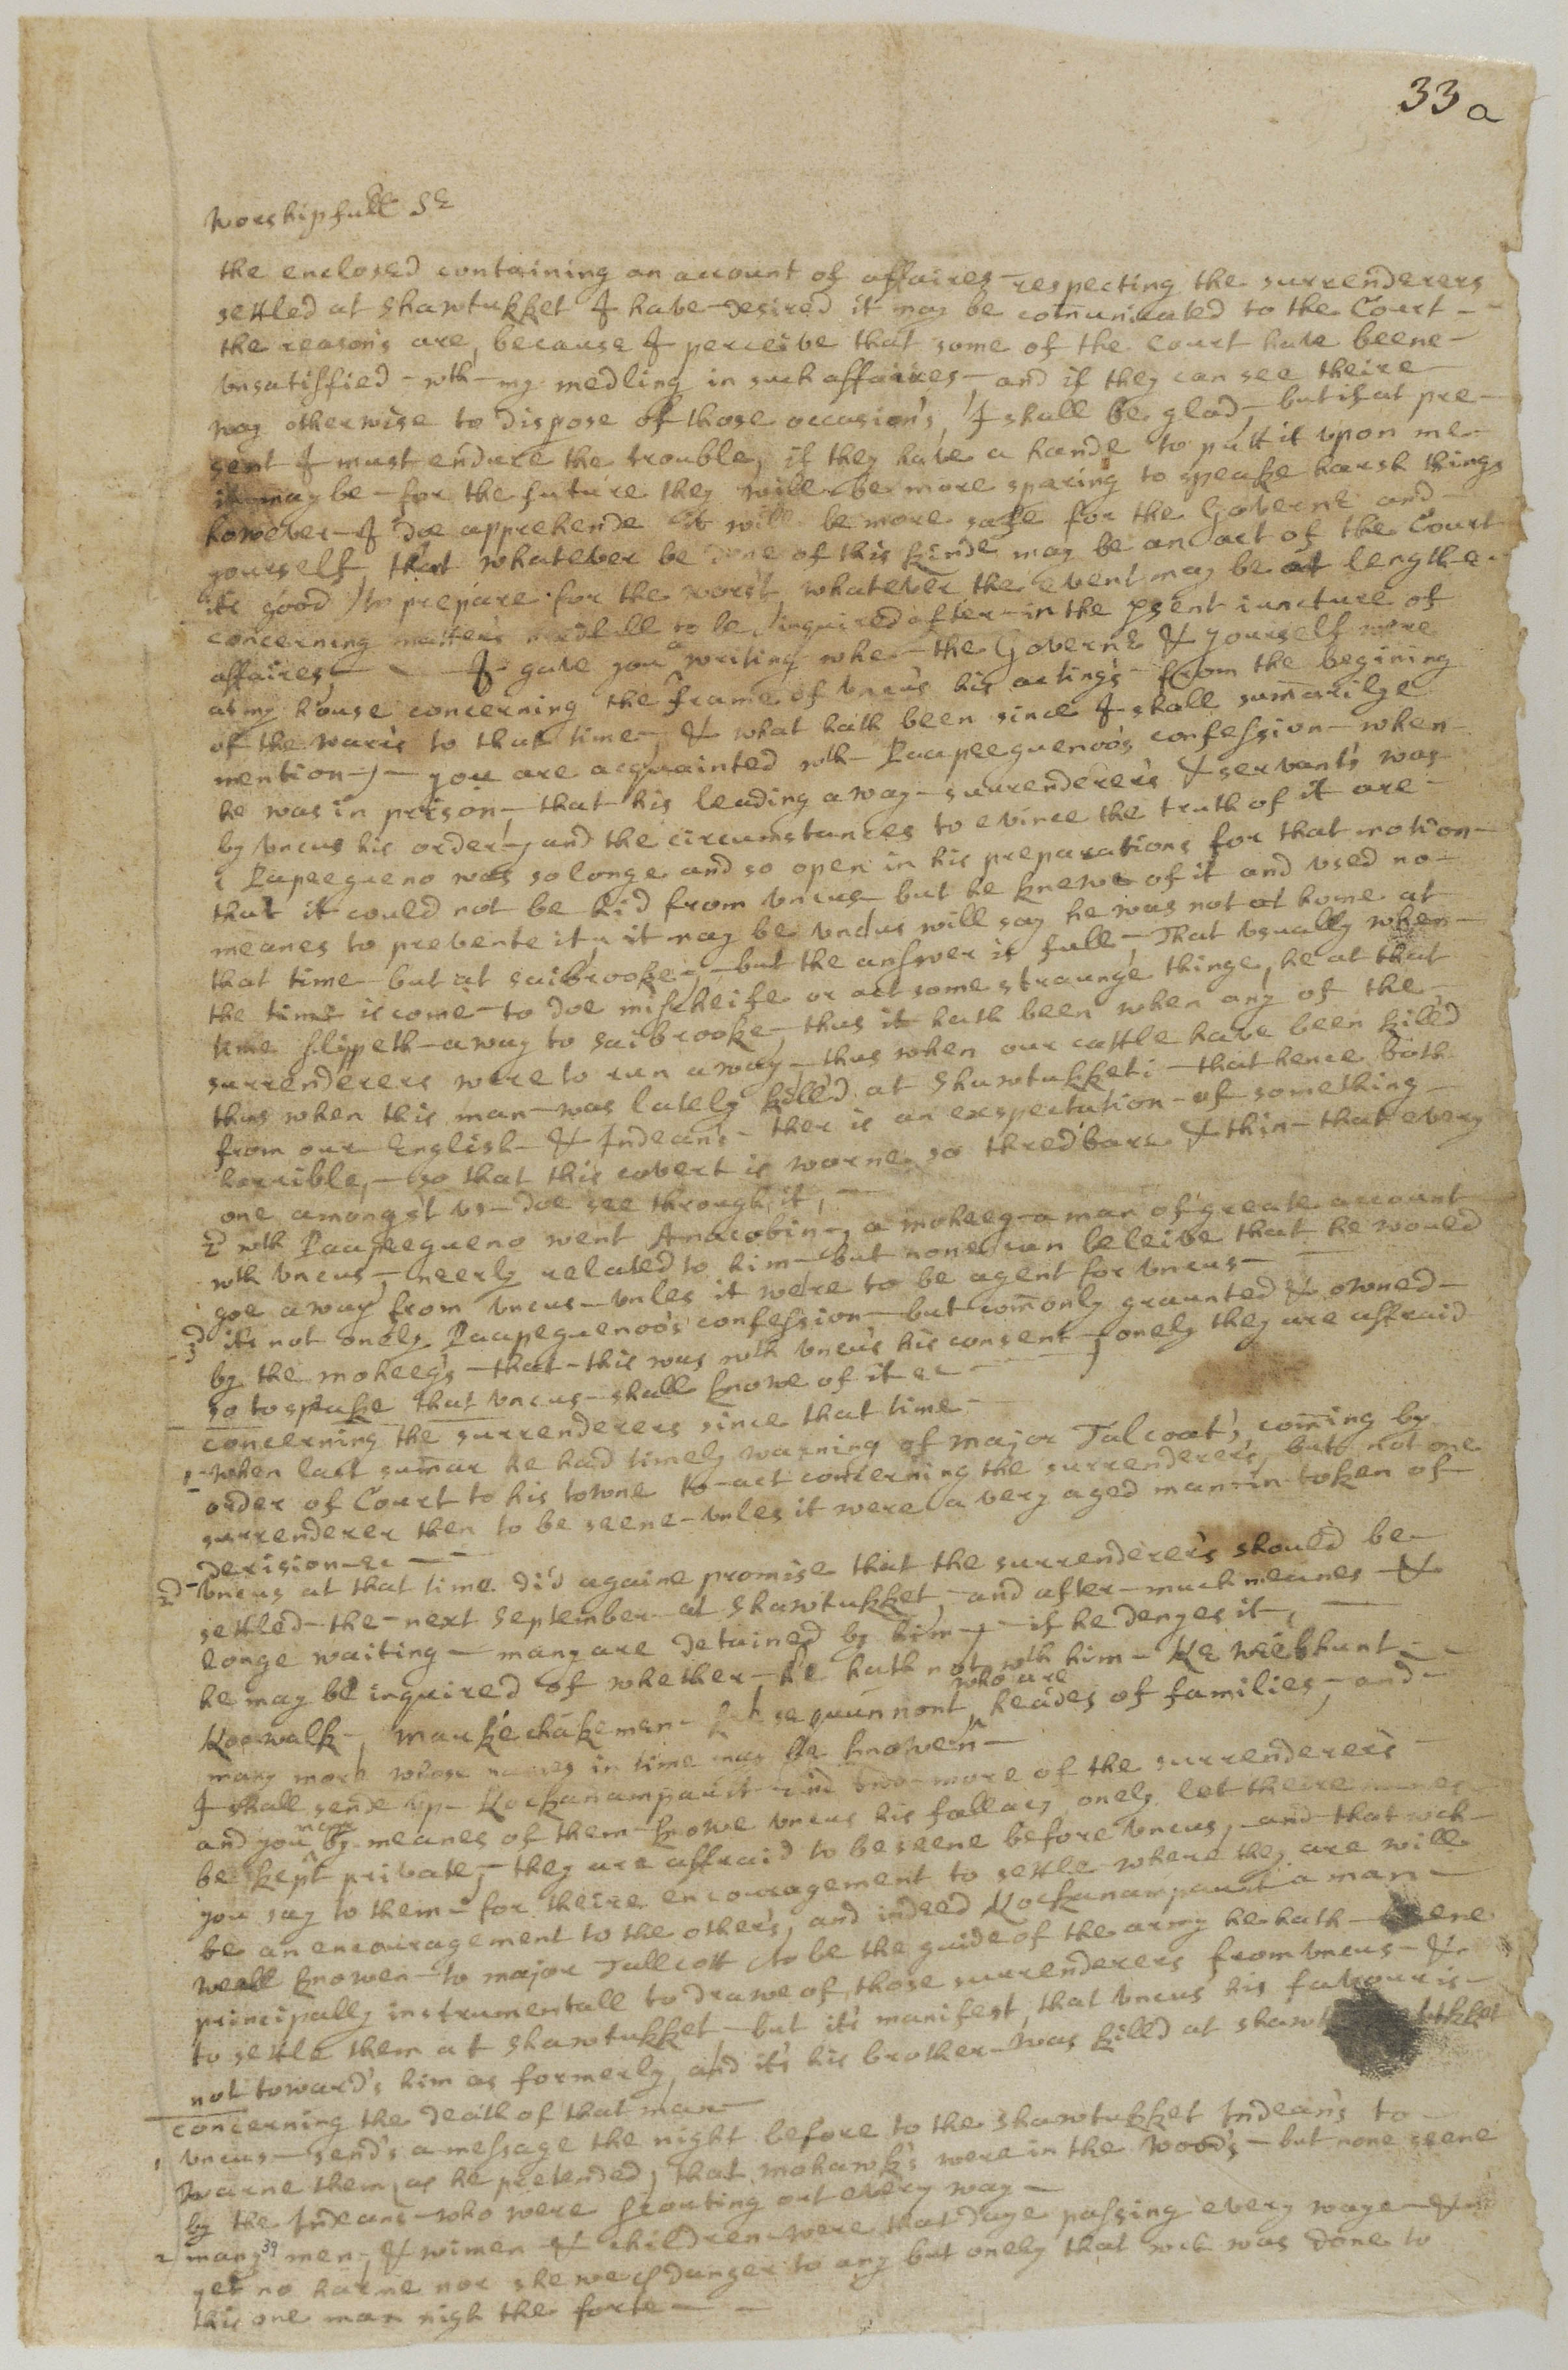 33a
Worshipfull Sr
the enclosed containing an account of affaires - respecting the surrenderers
settled at Shawtukket I have - desired it may be comunicated to the Court - -
the reason's are, because I perceive that some of the Court have beene -
vnsatisfied - wth - my medling in such affaires - and if they can see theire
way otherwise to dispose of those occasion's, I shall be glad, - but if at pre -
sent I must endure the trouble, if they have a hande to putt it vpon me
it may be - for the future they will be more sparing to speake harsh things
however - I doe apprehende it will be more safe for the Governr and -
yourself, that whatever be done of this kinde may be an act of the Court
its good to prepare for the worst whatever the event may be at lengthe -
concerning matters needfull to be inquired after - in the psent iuncture of
affaires, - - I gave you a writing when - the Governr & yourself were
at my house concerning the frame of vncus his acting's - from the begining
of the warr's to that time -, & what hath been since I shall sumarilye
mention -, - you are acquainted wth - Paapeequenoo's confession - when -
he was in prison -, that his leading away - surrenderer's & servants was
by vncus his order -, and the circumstances to evince the truth of it are -
1 Papeequeno was so longe and so open in his preparations for that motion -
that it could not be hid from vncus - but he knewe of it and vsed no -
meanes to prevente it, it may be vncus will say he was not at home at
that time - but at saibrooke -, - but the answer is full -, That vsually when -
the time is come - to doe mischeife or act some straunge thinge, he at that
time slippeth - away to saibrooke -, thus it hath been when any of the -
surrenderers were to run away -, thus when our cattle have been kill'd
thus when this man - was lately kill'd at Shawtukket: - that hence both
from our English - & Indean's - ther is an exspectation - of something -
horrible, - so that this covert is worne so thredbare & thin - that every
one amongst vs - doe see through it, -
2d wth Paapeequeno went Anacobin -, a moheeg - a man of greate account
wth vncus -, neerly related to him - but none can beleive that he would
goe away from vncus - vnles it were to be agent for vncus -
3d its not onely Paapequenoo's confession - but comonly graunted & owned -
by the moheeg's - that - this was wth vncus his consent -, onely they are affraid
so to speake that vncus - shall knowe of it &c -
concerning the surrenderers since that time -
1 - when last sumar he had timely warning of major Talcoat's, coming by
order of Court to his towne to - act concerning the surrenderer's, but not one
surrenderer then to be seene - vnles it were a very aged man - in token of -
derision - &c - -
2d - vncus at that time did againe promise that the surrenderer's should be -
settled - the - next September - at Shawtukket, - and after - much meanes - &
longe waiting - many are detained by him -, - if he denyes it -, -
he may be inquired of whether - he hath not wth him - Ke weebhunt - -
Koewalk -, mauke chakemen - who are heades of families -, and -
many more whose names in time may be knowen -
I shall sende vp - Kockanampauit - and two - more of the surrenderer's -
and you may by meanes of them - knowe vncus his fallacy onely let theire names
be kept private, - they are affraid to be seene before vncus, - and - that wch -
you say to them - for theire encouragement to settle where they are will
be an encouragement to the other's, and indeed Kockanampauit a man -
weall knowen - to major Tallcott to be the guide of the army he hath - beene
principally instrumentall to drawe of those surrenderers from vncus - &
to settle them at Shawtukket - but it's manifest, that vncus his favour is -
not toward's him as formerly, and it's his brother - was kill'd at
concerning the death of that man -
1 vncus - send's a message the night before to the Shawtukket Indean's to -
warne them, as he pretended, that mohawk's were in the wood's - but none seene
by the Indeans - who were scouting out every way -
2 many 39 men -, & wimen & children were that daye passing every waye - &
yet no harme nor shewe of danger to any but onely that wch was done to
this one man nigh the forte - -